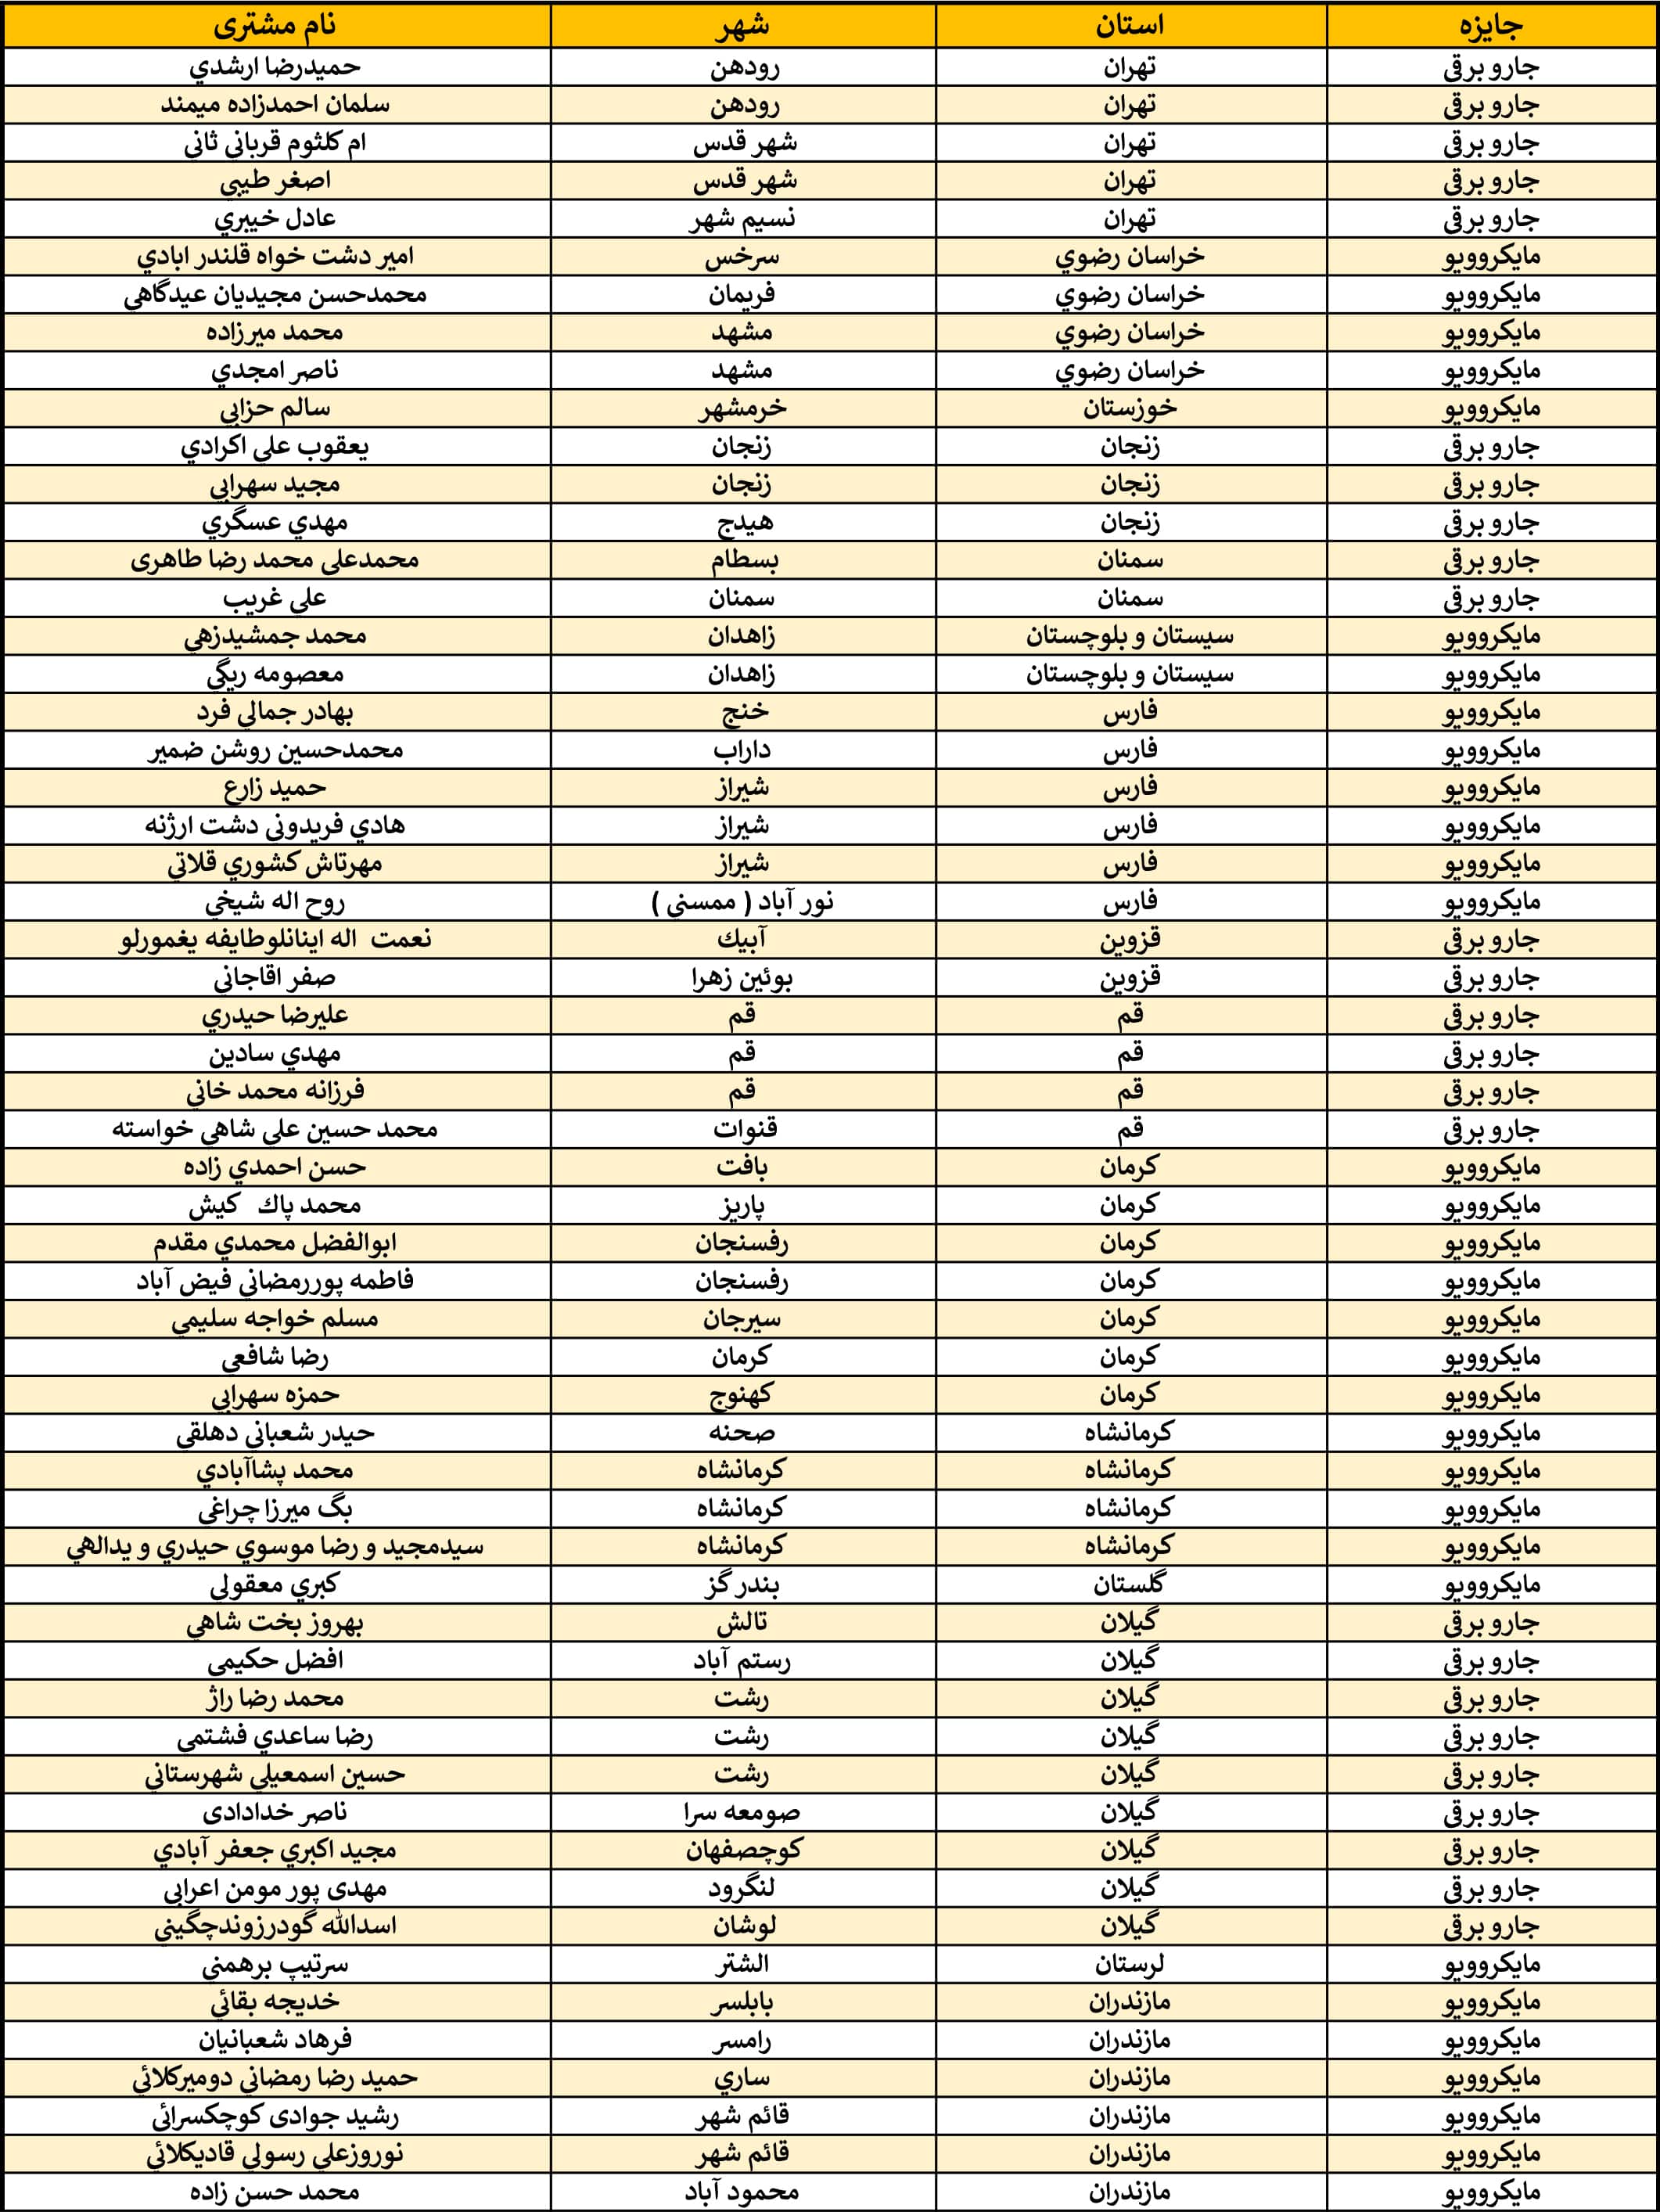 جایزه استان شهر نام مشتری
جارو برقی تهران رودهن حمیدرضا ارشدي
جارو برقی تهران رودهن سلمان احمدزاده میمند
جارو برقی تهران شهر قدس ام کلثوم قرباني ثاني
جارو برقی تهران شهر قدس اصغر طیبي
جارو برقی تهران نسیم شهر عادل خیبري
مایکروویو خراسان رضوي سرخس امیر دشت خواه قلندر ابادي
مایکروویو خراسان رضوي فریمان محمدحسن مجیدیان عیدگاهي
مایکروویو خراسان رضوي مشهد محمد میرزاده
مایکروویو خراسان رضوي مشهد ناصر امجدي
مایکروویو خوزستان خرمشهر سالم حزابي
جارو برقی زنجان زنجان یعقوب علي اکرادي
جارو برقی زنجان زنجان مجید سهرابي
جارو برقی زنجان هیدج مهدي عسگري
جارو برقی سمنان بسطام محمدعلی محمد رضا طاهری
جارو برقی سمنان سمنان علي غریب
مایکروویو سیستان و بلوچستان زاهدان محمد جمشیدزهي
مایکروویو سیستان و بلوچستان زاهدان معصومه ریگي
مایکروویو فارس خنج بهادر جمالي فرد
مایکروویو فارس داراب محمدحسین روشن ضمیر
مایکروویو فارس شیراز حمید زارع
مایکروویو فارس شیراز هادي فریدوني دشت ارژنه
مایکروویو فارس شیراز مهرتاش کشوري قلاتي
مایکروویو فارس نور آباد ( ممسني ) روح اله شیخي
جارو برقی قزوین آبیك نعمت اله اینانلوطایفه یغمورلو
جارو برقی قزوین بوئین زهرا صفر اقاجاني
جارو برقی قم قم علیرضا حیدري
جارو برقی قم قم مهدي سادین
جارو برقی قم قم فرزانه محمد خاني
جارو برقی قم قنوات محمد حسین علي شاهي خواسته
مایکروویو کرمان بافت حسن احمدي زاده
مایکروویو کرمان پاریز محمد پاك کیش
مایکروویو کرمان رفسنجان ابوالفضل محمدي مقدم
مایکروویو کرمان رفسنجان فاطمه پوررمضاني فیض آباد
مایکروویو کرمان سیرجان مسلم خواجه سلیمي
مایکروویو کرمان کرمان رضا شافعي
مایکروویو کرمان کهنوج حمزه سهرابي
مایکروویو کرمانشاه صحنه حیدر شعباني دهلقي
مایکروویو کرمانشاه کرمانشاه محمد پشاآبادي
مایکروویو کرمانشاه کرمانشاه بگ میرزا چراغي
مایکروویو کرمانشاه کرمانشاه سیدمجید و رضا موسوي حیدري و یدالهي
مایکروویو گلستان بندر گز کبري معقولي
جارو برقی گیلان تالش بهروز بخت شاهي
جارو برقی گیلان رستم آباد افضل حکیمی
جارو برقی گیلان رشت محمد رضا راژ
جارو برقی گیلان رشت رضا ساعدي فشتمي
جارو برقی گیلان رشت حسین اسمعیلي شهرستاني
جارو برقی گیلان صومعه سرا ناصر خدادادی
جارو برقی گیلان کوچصفهان مجید اکبري جعفر آبادي
جارو برقی گیلان لنگرود مهدی پور مومن اعرابی
جارو برقی گیلان لوشان اسدالله گودرزوندچگیني
مایکروویو لرستان الشتر سرتیپ برهمني
مایکروویو مازندران بابلسر خدیجه بقائي
مایکروویو مازندران رامسر فرهاد شعبانیان
مایکروویو مازندران ساري حمید رضا رمضاني دومیرکلائي
مایکروویو مازندران قائم شهر رشید جوادی کوچکسرائی
مایکروویو مازندران قائم شهر نوروزعلي رسولي قادیکلائي
مایکروویو مازندران محمود آباد محمد حسن زاده